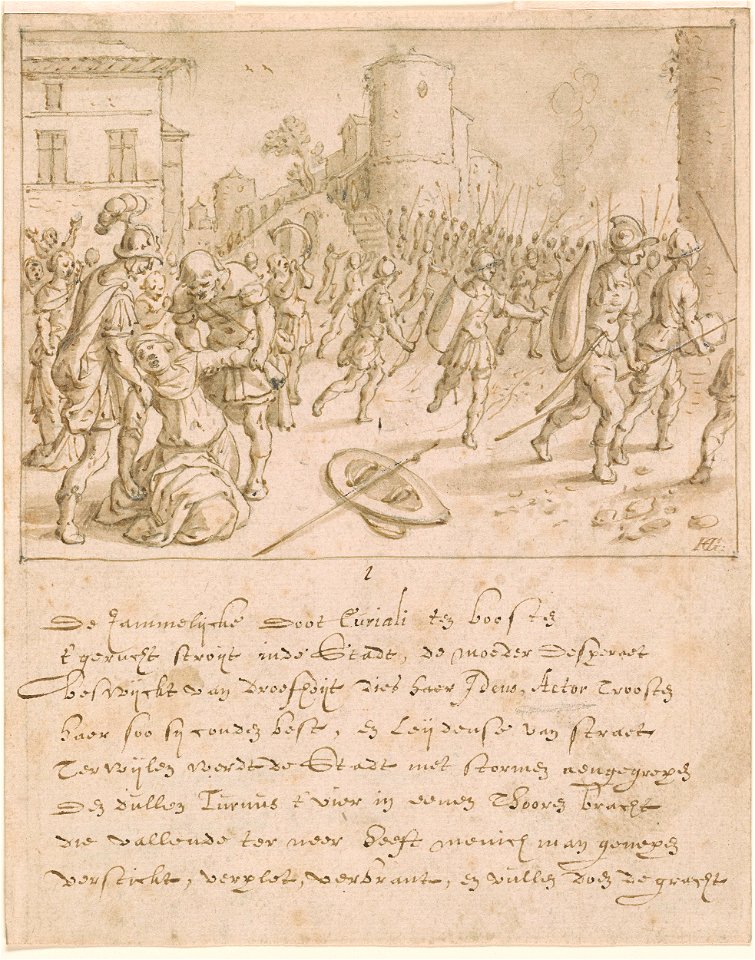 KC
1
De Jammelijcke doot Euriali ten boosten
t'gerucht stroijt inde Stadt, de moeder desperaet
beswijckt van droefheijt dies haer Ideus, Actor troosten
haer soo sij conden best, en leijdense van straet
Terwijlen werdt de Stadt met stormen aengegrepen
Den dullen Turnus t'vier in eenen Thooren bracht
die vallende ter neer heeft menich man genepen
verstickt, verplet, verbrant, en vullen doen de gracht